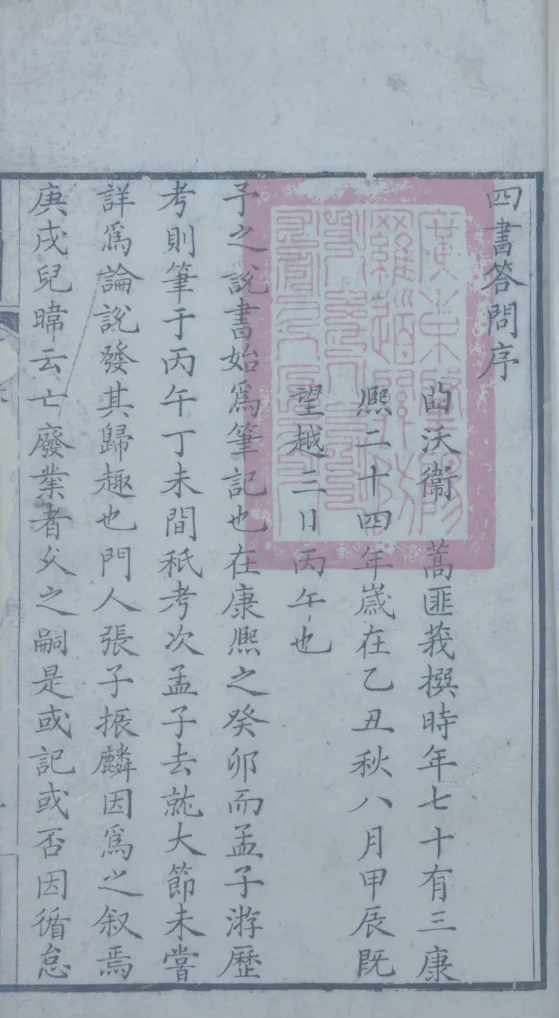 四書答問序
曲沃衞 蒿匪莪撰時年七十有三康
熙二十四年歲在乙丑秋八月甲辰既
望越三日丙午也
予之說書始爲筆記也在康熙之癸卯而孟子游歷
考則筆于丙午丁未間秖考次孟子去就大節未嘗
詳爲論說發其歸趣也門人張子振麟因爲之叙焉
庚戌兒暐云亡廢業者父之嗣是或記或否因循怠